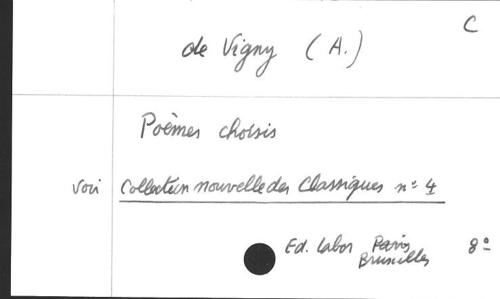 C
de Vigny (A.)
Poèmes choisis
voir Collection nouvelle des Classiques n° 4
Ed. Labor Paris 8°
Bruxelles